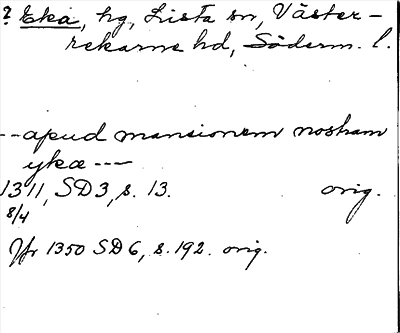 ? Eka, hg, Lista sn, Väster-
rekarne hd, Söderm. l.
--apud mansionem nostram
ykæ ---
1311, SD3, s. 13. orig.
8/4
Jfr 1350 SD6, s. 192. orig.